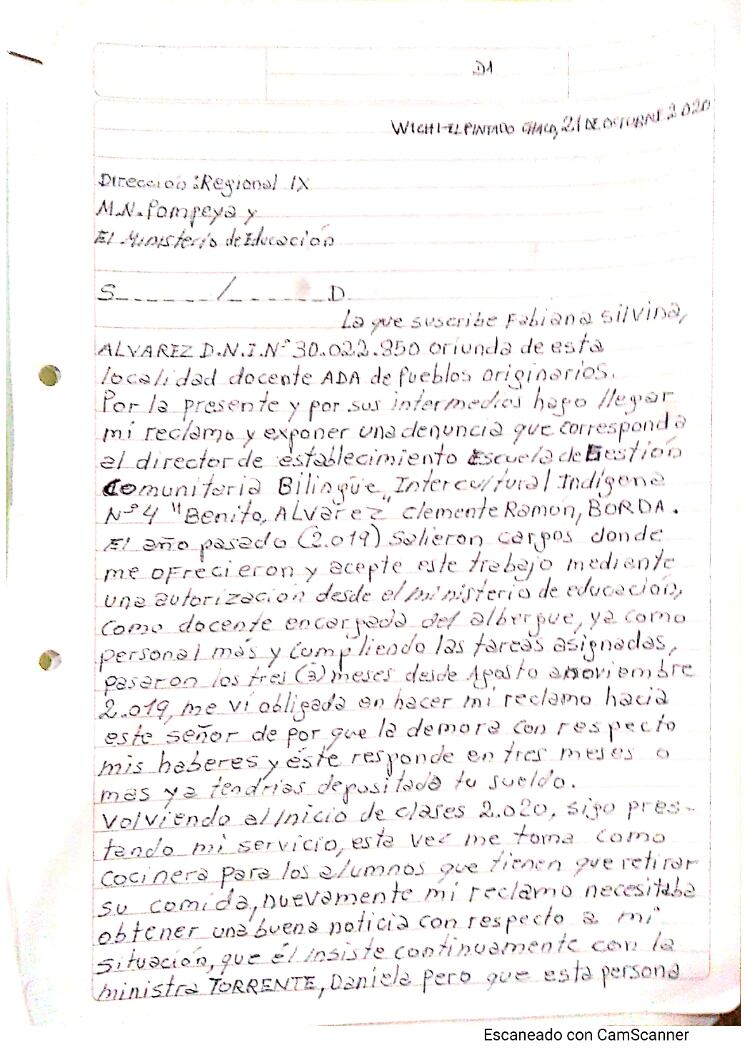 D1
WICHI-EL PINTADO CHACO, 21 DE OCTUBRE 2020
Dirección: Regional IX
M.N. Pompeya y
El Ministerio de Educación
S______/______D.
La que suscribe Fabiana Silvina,
ALVAREZ D.N.I. N° 30.022.350 oriunda de esta
localidad docente ADA de Pueblos originarios.
Por la presente y por sus intermedios hago llegar
mi reclamo y exponer una denuncia que corresponda
al director de establecimiento Escuela de Gestión
Comunitaria Bilingüe, Intercultural Indígena
N° 4 "Benito, ALVarez" Clemente Ramon, BORDA.
El año pasado (2.019) Salieron cargos donde
me ofrecieron y acepte este trabajo mediante
una autorización desde el ministerio de educación,
como docente encargada del albergue, ya como
personal más y cumpliendo las tareas asignadas,
pasaron los tres (3) meses desde Agosto a noviembre
2.019, me ví obligada en hacer mi reclamo hacia
este señor de por que la demora con respecto
mis haberes y éste responde en tres meses o
mas ya tendrias depositado tu sueldo.
Volviendo al Inicio de clases 2.020, sigo pres-
tando mi servicio, esta vez me toma como
cocinera para los alumnos que tienen que retirar
su comida, nuevamente mi reclamo necesitaba
obtener una buena noticia con respecto a mi
situación, que él insiste continuamente con la
ministra TORRENTE, Daniela pero que esta persona
Escaneado con CamScanner